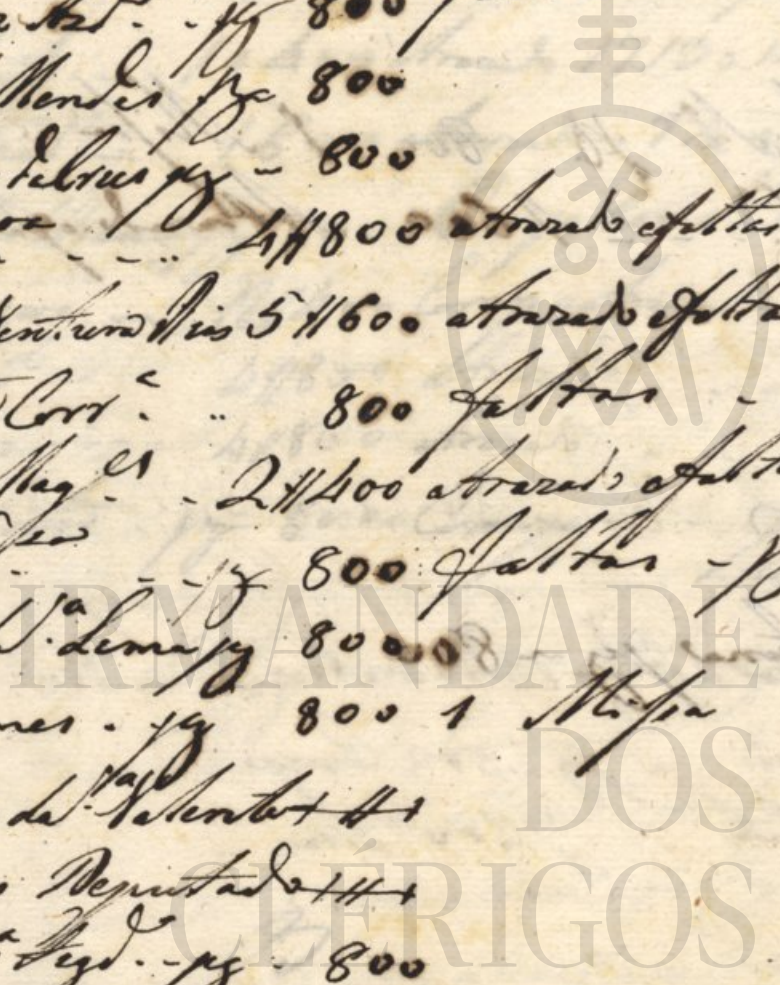 pg 800
Mendes pg 800
Februs pg - 800
- - - - 4#800 atrazado e faltas
Ventura Dias 5#600 atrazado e falta
Corr.ª .. 800 faltas -
Mag.es - 2#400 atrazado e falt
- - pg 800 faltas - p
S.ª Lema pg 800
nes - pg 800 1 Missa
da S.ª Valente + # +
Deputado + # +
Fegd.º - pg - 800
IRMANDADE
DOS
CLÉRIGOS